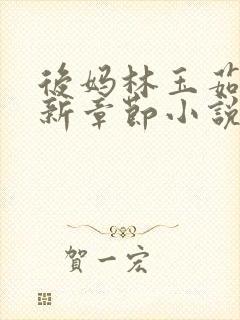 後妈林玉茹
新章節小說
賀一宏